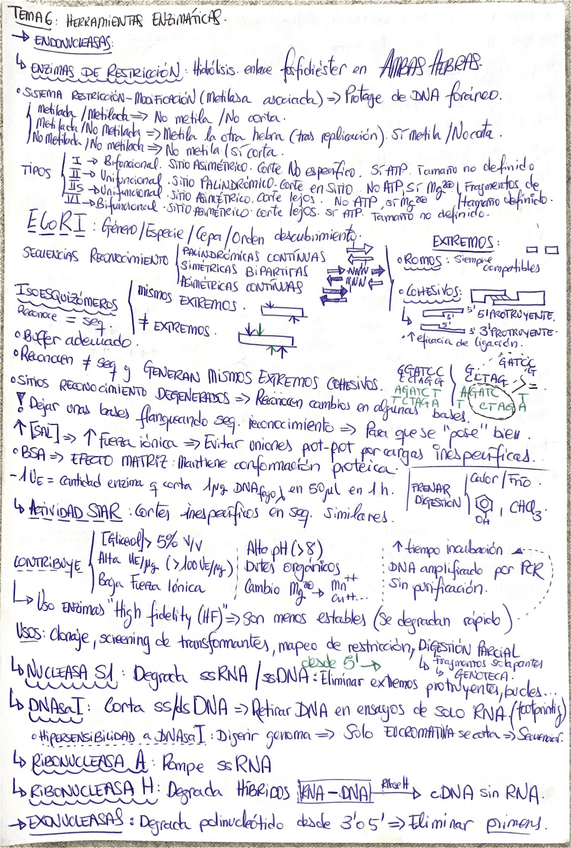 TEMA 6: HERRAMIENTAS ENZIMÁTICAS.
→ ENDONUCLEASAS:
↳ ENZIMAS DE RESTRICCIÓN: Hidólisis enlace fosfodiéster en AMBAS HEBRAS.
• SISTEMA RESTRICCIÓN-MODIFICACIÓN (Metilasa asociada) ⇒ Protege de DNA foráneo.
Metilada / Metilada ⇒ No metila / No corta.
Metilada / No Metilada ⇒ Metila la otra hebra (tras replicación). Sí metila / No corta.
No Metilada / No metilada ⇒ No metila / Sí corta.
TIPOS
I → Bifuncional. SITIO ASIMÉTRICO. Corte No específico. Sí ATP. Tamaño no definido
II → Unifuncional. SITIO PALINDRÓMICO. Corte en SITIO. No ATP, sí Mg²⁺
IIs → Unifuncional. SITIO ASIMÉTRICO. Corte lejos. No ATP, sí Mg²⁺
Fragmentos de tamaño definido.
III → Bifuncional. SITIO ASIMÉTRICO. Corte lejos. Sí ATP. Tamaño no definido.
EcoRI: Género/Especie/Cepa/Orden descubrimiento.
SECUENCIAS RECONOCIMIENTO
PALINDRÓMICAS CONTÍNUAS
SIMÉTRICAS BIPARTITAS
NNN
NNN
ASIMÉTRICAS CONTÍNUAS
EXTREMOS:
• ROMOS: Siempre compatibles
• COHESIVOS:
5' 5'PROTRUYENTE.
3' 3'PROTRUYENTE.
• ↑ eficacia de ligación.
ISOESQUIZÓMEROS
Reconoce = seq.
mismos EXTREMOS.
≠ EXTREMOS.
• Buffer adecuado.
• Reconocen ≠ seq y GENERAN MISMOS EXTREMOS COHESIVOS.
GGATCC
CCTAGG
AGATCT
TCTAGA
G
CCTAG
GATCC
G
A
GATC
CTAG
T
A
• SITIOS RECONOCIMIENTO DEGENERADOS ⇒ Reconocen cambios en algunas bases.
! Dejar unas bases flanqueando seq. reconocimiento ⇒ Para que se "pose" bien.
↑ [SAL] ⇒ ↑ Fuerza iónica ⇒ Evitar uniones prot-prot por cargas inespecíficas.
• BSA ⇒ EFECTO MATRIZ: Mantiene conformación proteica.
- 1 UE = cantidad enzima q corta 1 μg DNA fago λ en 50 μl en 1 h.
FRENAR DIGESTIÓN
Calor / Frío
OH, CHCl₃.
↳ ACTIVIDAD STAR: Cortes inespecíficos en seq. similares.
CONTRIBUYE
[Glicerol] > 5% V/V
Alta UE/μg (>100 UE/μg)
Baja Fuerza Iónica
Alto pH (>8)
Dptes orgánicos
Cambio Mg²⁺ → Mn⁺⁺
Cu⁺⁺...
↑ tiempo incubación
DNA amplificado por PCR
Sin purificación.
↳ Uso enzimas "High fidelity (HF)" ⇒ Son menos estables (Se degradan rápido)
USOS: Clonaje, screening de transformantes, mapeo de restricción, DIGESTIÓN PARCIAL
↳ Fragmentos solapantes
↳ GENOTECA.
desde 5' →
↳ NUCLEASA S1: Degrada ssRNA / ssDNA: Eliminar extremos protruyentes, bucles...
↳ DNAsa I: Corta ss/ds DNA ⇒ Retirar DNA en ensayos de solo RNA (footprinting)
• HIPERSENSIBILIDAD a DNAsa I: Digerir genoma ⇒ Solo EUCROMATINA se corta ⇒ Secuenciar.
↳ RIBONUCLEASA A: Rompe ssRNA
↳ RIBONUCLEASA H: Degrada HÍBRIDOS RNA-DNA RNase H → cDNA sin RNA.
→ EXONUCLEASAS: Degrada polinucleótido desde 3' o 5' ⇒ Eliminar primers.